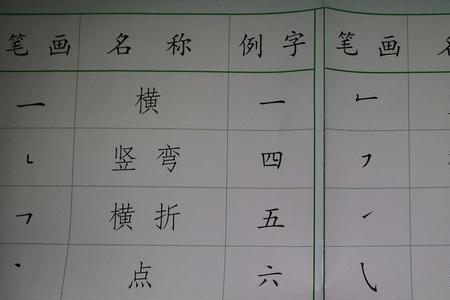 笔画 名称 例字 笔画
一 横 一 𠃊
㇄ 竖弯 四 ㇇
𠃍 横折 五 ㇀
丶 点 六 ㇂